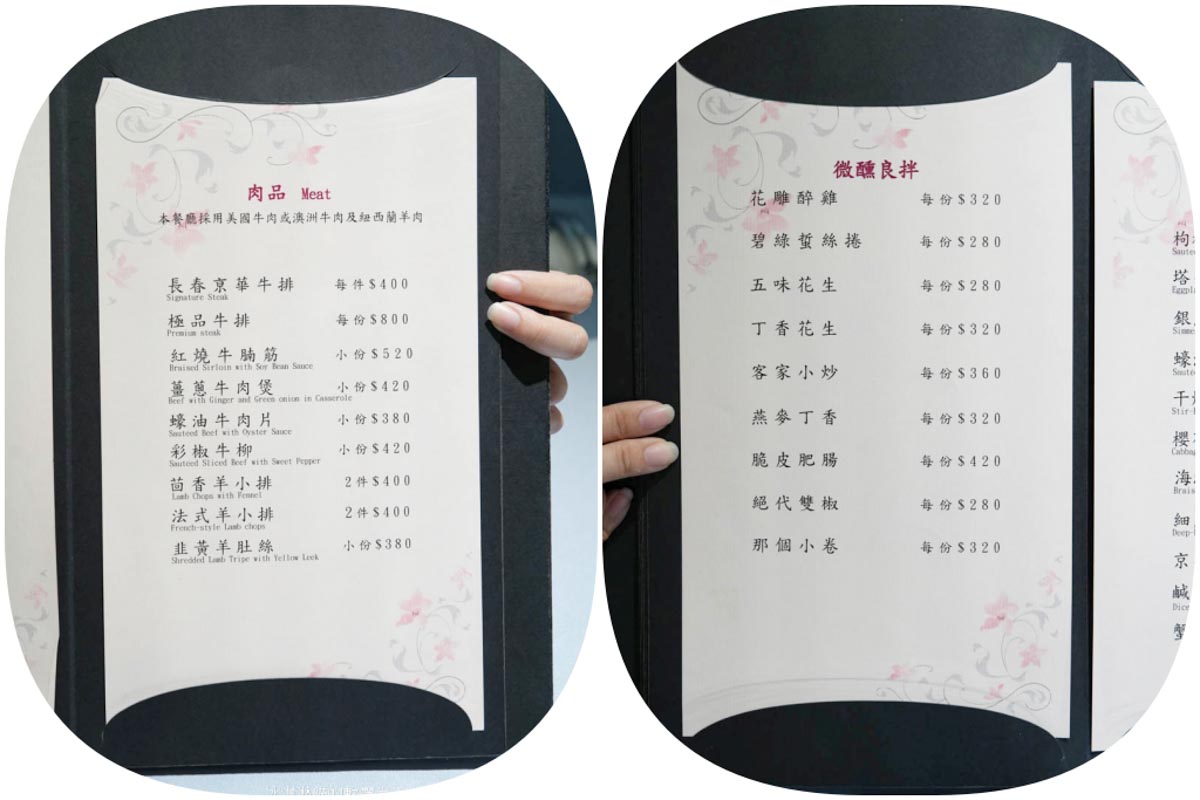 肉品 Meat
本餐廳採用美國牛肉或澳洲牛肉及紐西蘭羊肉
長春京華牛排 每件$400
Signature Steak
極品牛排 每份$800
Premium steak
紅燒牛腩筋 小份$520
Braised Sirloin with Soy Bean Sauce
薑蔥牛肉煲 小份$420
Beef with Ginger and Green onion in Casserole
蠔油牛肉片 小份$380
Sauteed Beef with Oyster Sauce
彩椒牛柳 小份$420
Sauteed Sliced Beef with Sweet Pepper
茴香羊小排 2件$400
Lamb Chops with Fennel
法式羊小排 2件$400
French-style Lamb chops
韭黃羊肚絲 小份$380
Shredded Lamb Tripe with Yellow Leek
微醺良拌
花雕醉雞 每份$320
碧綠蜇絲捲 每份$280
五味花生 每份$280
丁香花生 每份$320
客家小炒 每份$360
燕麥丁香 每份$320
脆皮肥腸 每份$420
絕代雙椒 每份$280
那個小卷 每份$320
枸
塔
銀
蠔
干
櫻
海
細
京
鹹
Dice
蟹